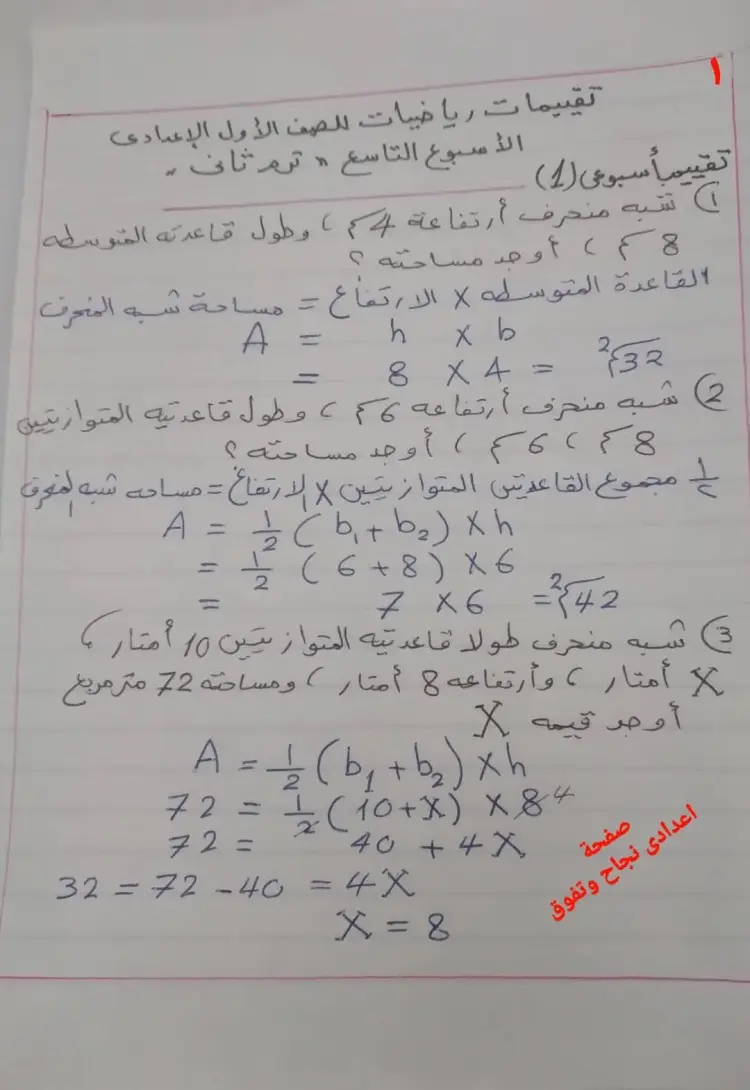 ١
تقييمات رياضيات للصف الأول الإعدادى
الأسبوع التاسع " ترم ثانى "
تقييم أسبوعى (1)
① شبه منحرف أرتفاعة 4 سم ، وطول قاعدته المتوسطه
8 سم ، أوجد مساحته ؟
القاعدة المتوسطه × الارتفاع = مساحة شبه المنحرف
A = h × b
= 8 × 4 = 32 سم²
② شبه منحرف أرتفاعه 6 سم ، وطول قاعدتيه المتوازيتين
8 سم ، 6 سم ، أوجد مساحته ؟
½ مجموع القاعدتين المتوازيتين × الارتفاع = مساحه شبه المنحرف
A = ½ (b₁ + b₂) × h
= ½ (6 + 8) × 6
= 7 × 6 = 42 سم²
③ شبه منحرف طولا قاعدتيه المتوازيتين 10 أمتار ،
X أمتار ، وأرتفاعه 8 أمتار ، ومساحته 72 متر مربع
أوجد قيمه X
A = ½ (b₁ + b₂) × h
72 = ½ (10 + X) × 8 4
72 = 40 + 4X
32 = 72 - 40 = 4X
X = 8
صفحة
اعدادى نجاح وتفوق